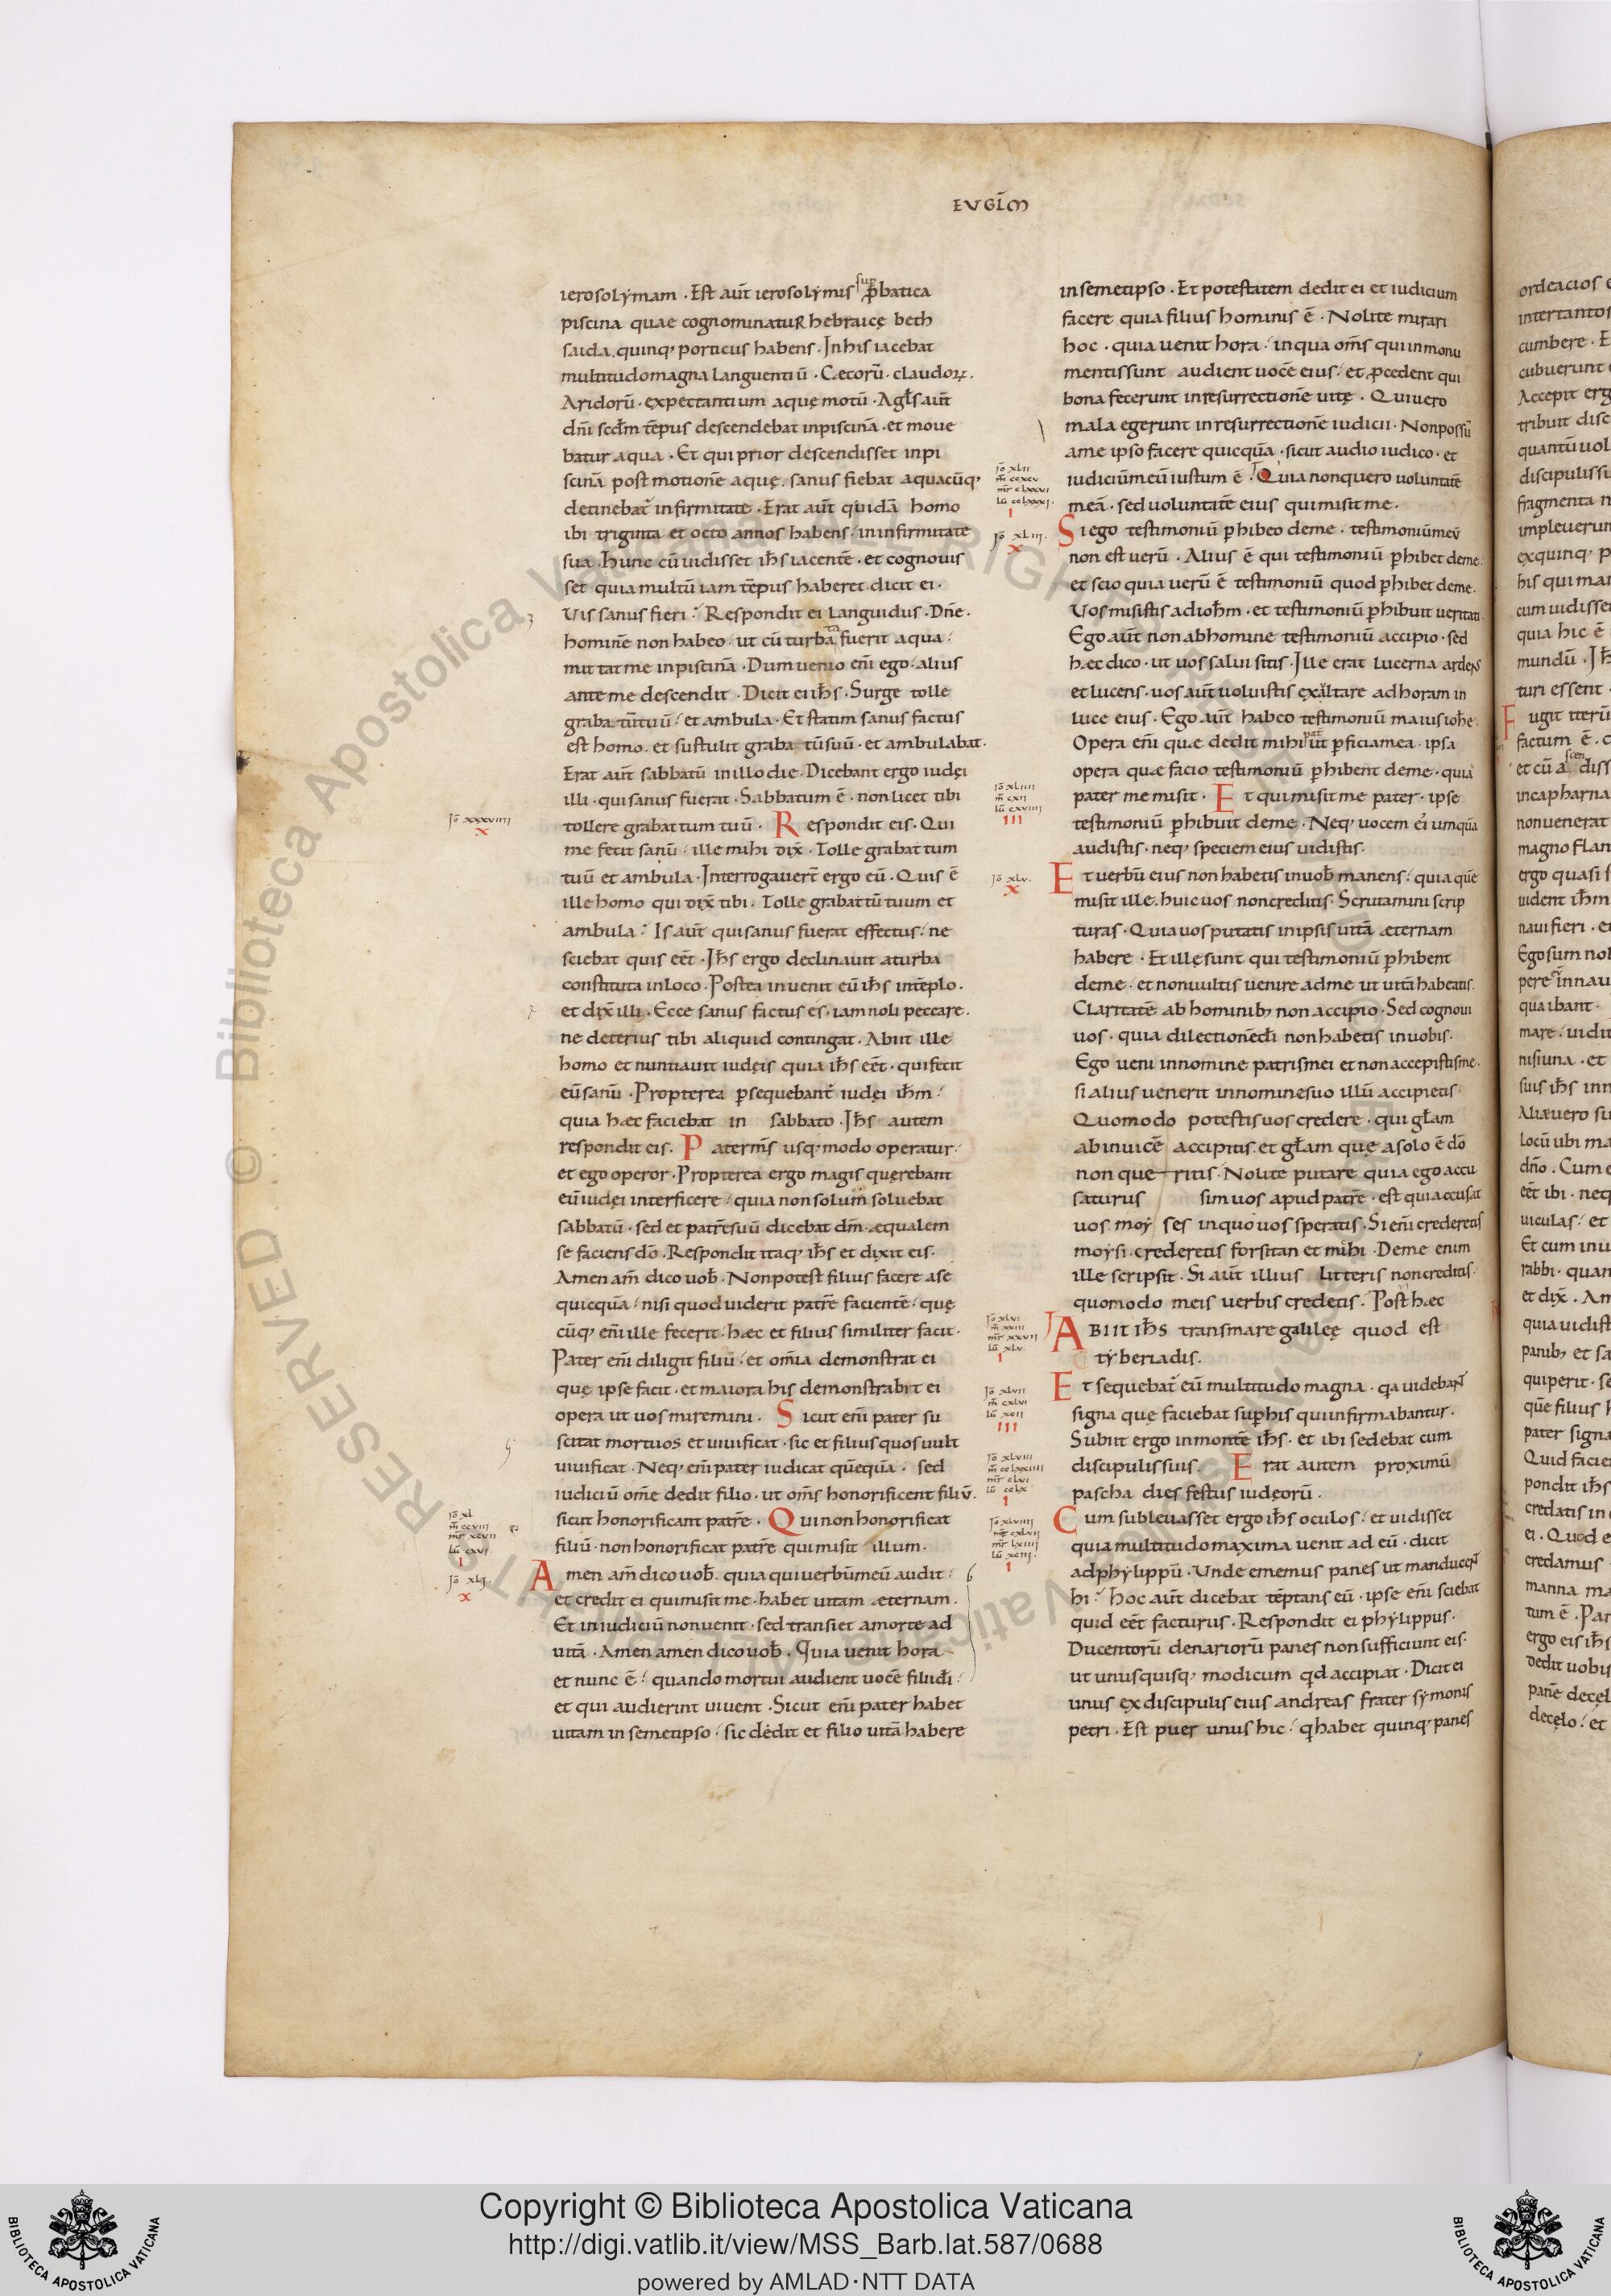 EVGLM̅
ierosolẏmam · Est aut̅ ierosolẏmis ꝓbatica
sup
piscina quae cognominatuR hebraicę beth
saida. quinq; porticus habens · Inhis iacebat
multitudomagna languentiu̅ · Cęcoru̅ · claudoꝝ.
Aridoru̅ · expectantium aquę motu̅ · Agl̅s aut̅
dn̅i scd̅m te̅pus descendebat inpiscina̅ · et moue
batur aqua · Et quiprior descendisset inpi
scina̅ post motione̅ aquę. sanus fiebat aquacu̅q;
detinebat̅ infirmitate · Erat aut̅ quida̅ homo
ibi triginta et octo annos habens · ininfirmitate
sua · Hunc cu̅ uidisset ih̅s iacente̅ · et cognouis
set quia multu̅ iam te̅pus haberet. dicit ei ·
Uis sanus fieri? Respondit ei languidus · Dn̅e ·
homine̅ non habeo · ut cu̅ turba fuerit aqua ·
ta
mittat me inpiscina̅ · Dum uenio eni̅ ego · alius
ante me descendit · Dicit ei ih̅s · Surge tolle
grabatu̅ tuu̅ · et ambula · Et statim sanus factus
est homo. et sustulit grabatu̅ suu̅ · et ambulabat.
Erat aut̅ sabbatu̅ inillo die · Dicebant ergo iudęi
illi · qui sanus fuerat · Sabbatum e̅ · non licet tibi
tollere grabattum tuu̅ · Respondit eis. Qui
me fecit sanu̅ · ille mihi dix̅ · Tolle grabattum
tuu̅ et ambula · Interrogauer̅t ergo eu̅ · Quis e̅
ille homo qui dix̅ tibi · Tolle grabattu̅ tuum et
ambula? Is aut̅ quisanus fuerat effectus · ne
sciebat quis eet̅ · Ih̅s ergo declinauit aturba
constituta inloco · Postea inuenit eu̅ ih̅s inte̅plo ·
et dix̅ illi · Ecce sanus factus es · iam noli peccare.
ne deterius tibi aliquid contingat · Abiit ille
homo et nuntiauit iudęis quia ih̅s eet̅ · qui fecit
eu̅ sanu̅ · Propterea ꝑsequebant̅ iudęi ih̅m ·
quia hęc faciebat in sabbato · Ih̅s autem
respondit eis. Pater m̅s usq; modo operatur ·
et ego operor · Propterea ergo magis quęrebant
eu̅ iudęi interficere · quia non solum soluebat
sabbatu̅ · sed et patre̅ suu̅ dicebat dm̅ · ęqualem
se faciens do̅ · Respondit itaq; ih̅s et dixit eis ·
Amen am̅ dico uob̅ · Nonpotest filius facere ase
quicqua̅ · nisi quod uiderit patre̅ faciente̅ · quę
cu̅q; eni̅ ille fecerit · hęc et filius similiter facit ·
Pater eni̅ diligit filiu̅ · et om̅ia demonstrat ei
quę ipse facit · et maiora his demonstrabit ei
opera ut uos miremini · Sicut eni̅ pater su
scitat mortuos et uiuificat · sic et filius quos uult
uiuificat · Neq; eni̅ pater iudicat que̅qua̅ · sed
iudiciu̅ om̅e dedit filio · ut om̅s honorificent filiu̅.
sicut honorificant patre̅ · Qui non honorificat
filiu̅ · non honorificat patre̅ qui misit illum ·
Amen am̅ dico uob̅. quia qui uerbu̅ meu̅ audit ·
et credit ei qui misit me · habet uitam ęternam ·
Et iniudiciu̅ nonuenit · sed transiet amorte ad
uita̅ · Amen amen dico uob̅ · Quia uenit hora
et nunc e̅ · quando mortui audient uoce̅ filii di̅ ·
et qui audierint uiuent · Sicut eni̅ pater habet
uitam in semetipso · sic dedit et filio uita̅ habere
Jo̅ xxxviiii
x
Jo̅ xl
m̅ ccviii
mr̅ xcvii
lu̅ cxvi
i
Jo̅ xlj
x
in semetipso · Et potestatem dedit ei et iudicium
facere quia filius hominis e̅ · Nolite mirari
hoc · quia uenit hora · inqua om̅s qui in monu
mentis sunt audient uoce̅ eius · et ꝓcedent qui
bona fecerunt in resurrectione̅ uitę · Qui uero
mala egerunt in resurrectione̅ iudicii · Nonpossu̅
ame ipso facere quicqua̅ · sicut audio iudico · et
iudiciu̅ meu̅ iustum e̅ · Quia non quero uoluntate̅
mea̅ · sed uoluntate̅ eius qui misit me ·
Si ego testimoniu̅ ꝑhibeo deme · testimoniu̅ meu̅
non est ueru̅ · Alius e̅ qui testimoniu̅ ꝑhibet deme.
et scio quia ueru̅ e̅ testimoniu̅ quod ꝑhibet deme.
Vos misistis ad ioh̅m · et testimoniu̅ ꝑhibuit ueritati.
Ego aut̅ non ab homine testimoniu̅ accipio · sed
hęc dico · ut uos salui sitis · Ille erat lucerna ardens
et lucens · uos aut̅ uoluistis exaltare ad horam in
luce eius · Ego aut̅ habeo testimoniu̅ maius ioh̅e ·
Opera eni̅ quę dedit mihi ut ꝑficiam ea · ipsa
pat̅
opera quę facio testimoniu̅ ꝑhibent deme · quia
pater me misit · Et qui misit me pater · ipse
testimoniu̅ ꝑhibuit deme · Neq; uocem ei umqua̅
audistis · neq; speciem eius uidistis ·
Et uerbu̅ eius non habetis in uob̅ manens · quia que̅
misit ille. huic uos non creditis · Scrutamini scrip
turas · Quia uos putatis in ipsis uita̅ ęternam
habere · Et illę sunt qui testimoniu̅ ꝑhibent
deme · et non uultis uenire ad me ut uita̅ habeatis.
Claritate̅ ab hominib; non accipio · Sed cognoui
uos · quia dilectione̅ di̅ non habetis in uobis ·
Ego ueni in nomine patris mei et non accepistis me ·
si alius uenerit in nomine suo illu̅ accipietis ·
Quomodo potestis uos credere · qui gl̅am
ab inuice̅ accipitis. et gl̅am quę asolo e̅ do̅
non queritis · Nolite putare quia ego accu
saturus sim uos apud patre̅ · est qui accusat
uos moẏses in quo uos speratis · Si eni̅ crederetis
moẏsi · crederetis forsitan et mihi · Deme enim
ille scripsit · Si aut̅ illius litteris non creditis ·
quomodo meis uerbis credetis · Post hęc
ABIIT Ih̅S transmare galileę quod est
tẏberiadis.
Et sequebat̅ eu̅ multitudo magna · qa uidebant
signa quę faciebat suꝑ his qui infirmabantur ·
Subiit ergo inmonte̅ ih̅s · et ibi sedebat cum
discipulis suis. Erat autem proximu̅
pascha dies festus iudęoru̅ ·
Cum subleuasset ergo ih̅s oculos · et uidisset
quia multitudo maxima uenit ad eu̅ · dicit
ad phẏlippu̅ · Unde ememus panes ut manducent
hi? hoc aut̅ dicebat te̅ptans eu̅ · ipse eni̅ sciebat
quid eet̅ facturus · Respondit ei phẏlippus ·
Ducentoru̅ denarioru̅ panes non sufficiunt eis ·
ut unusquisq; modicum qd accipiat · Dicit ei
unus ex discipulis eius andreas frater sẏmonis
petri · Est puer unus hic · q habet quinq; panes
Jo̅ xlii
m̅ ccxcv
mr̅ clxxvi
lu̅ cclxxxi
i
Jo̅ xliii
x
Jo̅ xliiii
m̅ cxii
lu̅ cxviiii
iii
Jo̅ xlv
x
Jo̅ xlvi
m̅ xxiii
mr̅ xxvii
lu̅ xlv
i
Jo̅ xlvii
m̅ cxlvi
lu̅ xcii
iii
Jo̅ xlviii
m̅ cclxxiiii
mr̅ clvi
lu̅ cclx
i
Jo̅ xlviiii
m̅ cxlvii
mr̅ lxiiii
lu̅ xciii
i
ordeacios
intertantos
cumbere · E
cubuerunt
Accepit erg
tribuit disc
quantu̅ uol
discipulis su
fragmenta n
impleuerun
exquinq; p
his qui man
cum uidisse
quia hic e̅
mundu̅ · Ih̅
turi essent ·
Fugit iteru̅
factum e̅ ·
incapharna
non uenerat
magno flan
ergo quasi s
uident ih̅m
naui fieri · e
Ego sum nol
qua ibant ·
mare · uidit
nisi una · et
suis ih̅s inn
Alię uero su
locu̅ ubi ma
dn̅o · Cum e
eet̅ ibi · neq
uiculas · et
Et cum inu
rabbi · quan
et dix̅ · Am
quia uidist
panib; et sa
qui perit · se
que̅ filius h
pater signa
Quid facie
pondit ih̅s
credatis in
ei · Quod e
credamus
manna ma
tum e̅ · Pat
ergo eis ih̅s
dedit uobis
pane̅ decęl
decęlo · et
© Biblioteca Apostolica Vaticana ALL RIGHTS RESERVED
Copyright © Biblioteca Apostolica Vaticana
http://digi.vatlib.it/view/MSS_Barb.lat.587/0688
powered by AMLAD·NTT DATA
BIBLIOTECA APOSTOLICA VATICANA
BIBLIOTECA APOSTOLICA VATICANA